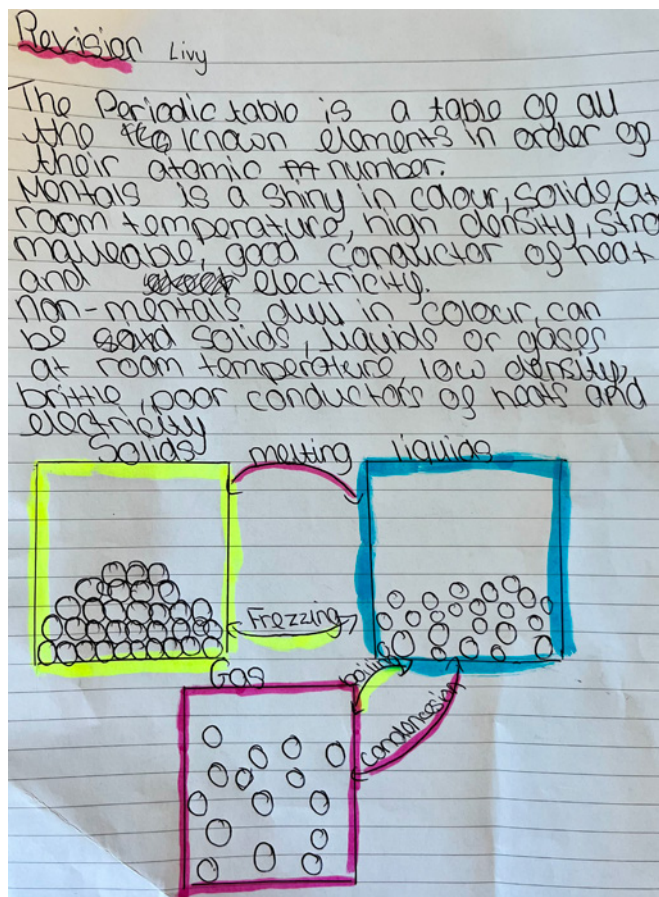 Revision Livy
The Periodic table is a table of all
the known elements in order of
their atomic number.
Mentals is a shiny in colour, solids, at
room temperature, high density, stro
malleable, good conductor of heat
and electricity.
non-mentals dull in colour, can
be solids, liquids or gases
at room temperature low density,
brittle, poor conductors of heats and
electricity
Solids melting liquids
Frezzing
Gas boiling
condonesian